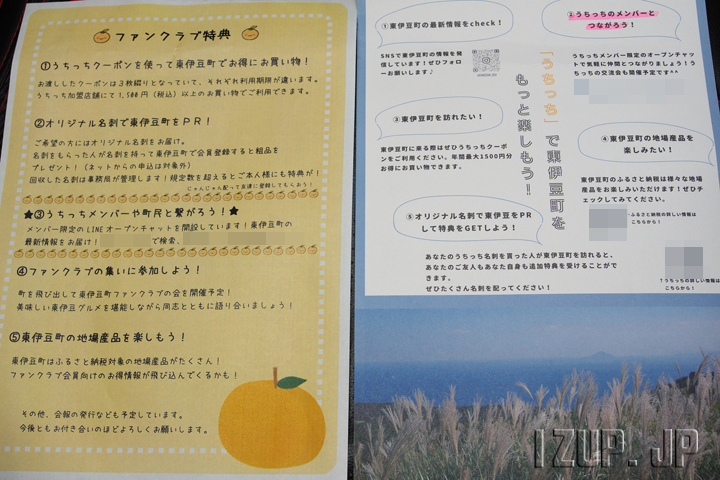 ファンクラブ特典
①うちっちクーポンを使って東伊豆町でお得にお買い物！
お渡ししたクーポンは3枚綴りとなっていて、それぞれ利用期限が違います。
うちっち加盟店舗にて1,500円（税込）以上のお買い物でご利用できます。
②オリジナル名刺で東伊豆町をPR！
ご希望の方にはオリジナル名刺をお届け。
名刺をもらった人が名刺を持って東伊豆町で会員登録すると粗品を
プレゼント！（ネットからの申込は対象外）
回収した名刺は事務局が管理します！規定数を超えるとご本人様にも特典が！
じゃんじゃん配って友達に登録してもらおう！
★③うちっちメンバーや町民と繋がろう！★
メンバー限定のLINEオープンチャットを開設しています！東伊豆町の
最新情報をお届け！
で検索。
④ファンクラブの集いに参加しよう！
町を飛び出して東伊豆町ファンクラブの会を開催予定！
美味しい東伊豆グルメを堪能しながら同志とともに語り合いましょう！
⑤東伊豆町の地場産品を楽しもう！
東伊豆町はふるさと納税対象の地場産品がたくさん！
ファンクラブ会員向けのお得情報が飛び込んでくるかも！
その他、会報の発行なども予定しています。
今後ともお付き合いのほどよろしくお願いします。
「うちっち」で東伊豆町を
もっと楽しもう！
①東伊豆町の最新情報をcheck！
SNSで東伊豆町の情報を発
信しています！ぜひフォロ
ーお願いします♪
②うちっちのメンバーと
つながろう！
うちっちメンバー限定のオープンチャッ
トで気軽に仲間とつながりましょう！う
ちっちの交流会も開催予定です^^
③東伊豆町を訪れたい！
東伊豆町に来る際はぜひうちっちクーポ
ンをご利用ください。年間最大1500円分
お得にお買い物できます。
④東伊豆町の地場産品を
楽しみたい！
東伊豆町のふるさと納税は様々な地場
産品をお楽しみいただけます！ぜひチ
ェックしてみてください。
←ふるさと納税の詳しい情報は
こちらから！
⑤オリジナル名刺で東伊豆をPR
して特典をGETしよう！
あなたのうちっち名刺を貰った人が東伊豆町を訪れると、
あなたのご友人もあなた自身も追加特典を受けることがで
きます。
ぜひたくさん名刺を配ってください！
↑うちっちの詳しい情報は
こちらから！
IZUP.JP